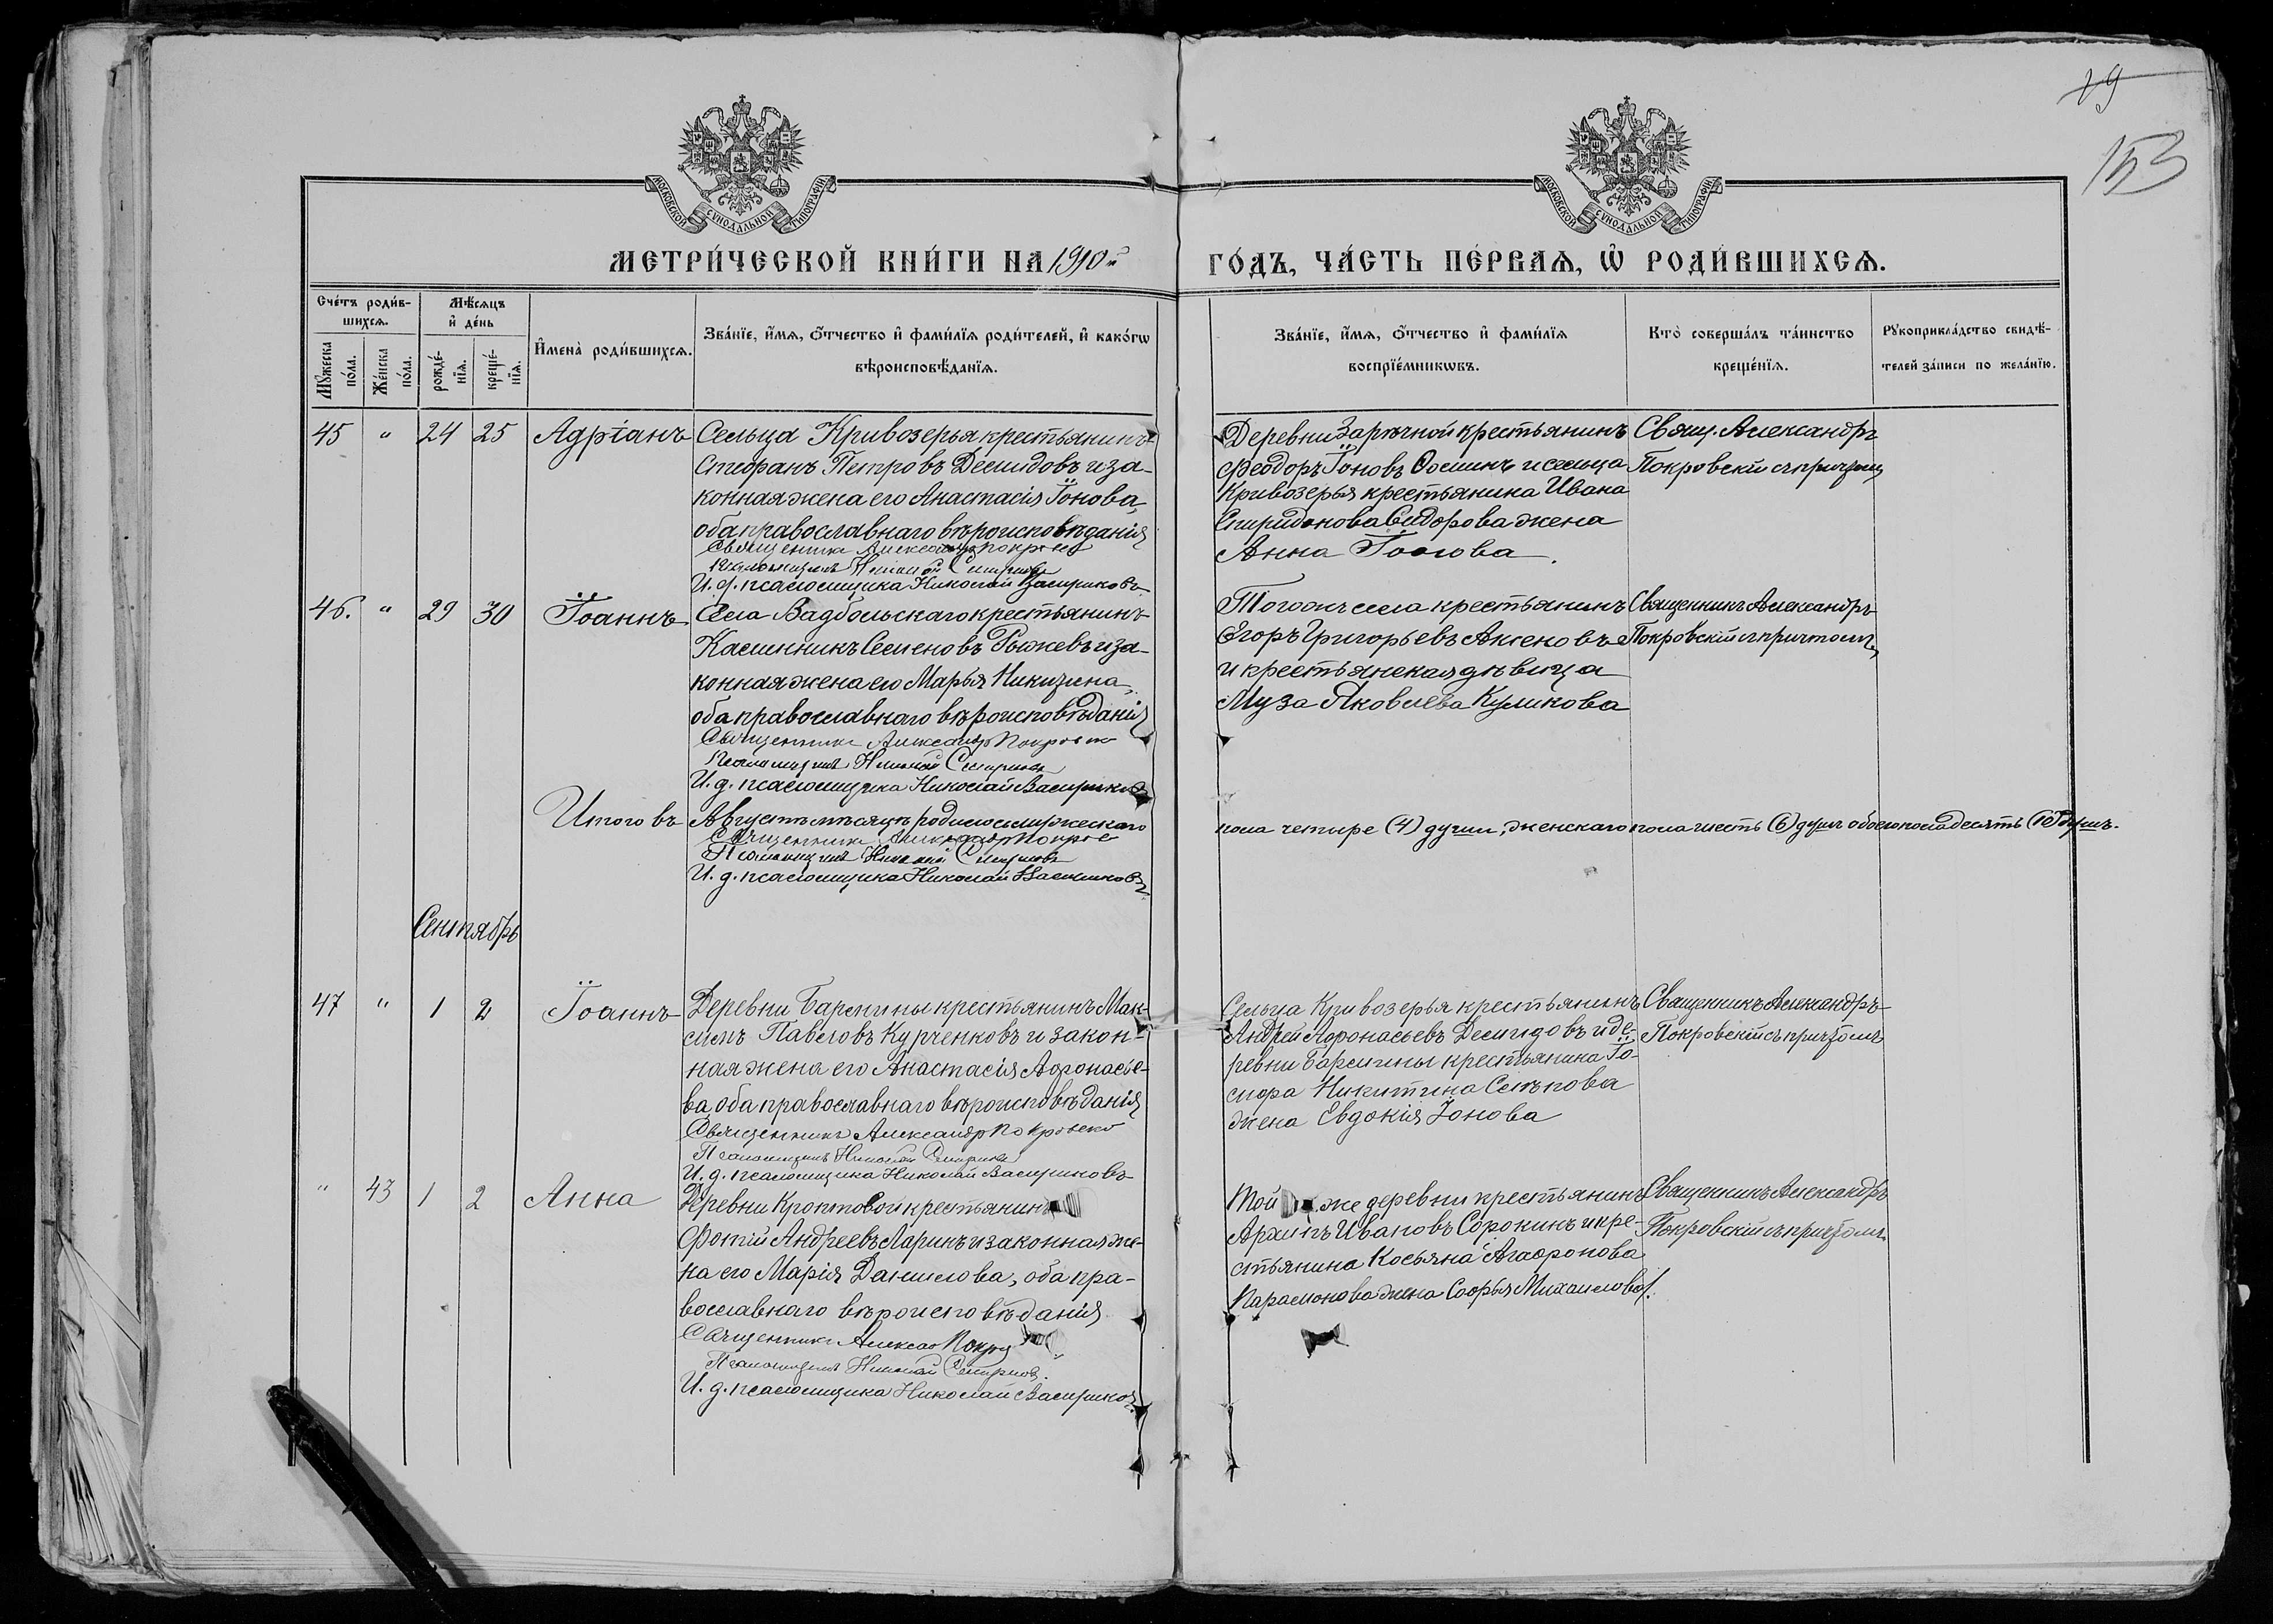 19
153
МОСКОВСКОЙ СѴНОДАЛЬНОЙ ТИПОГРАФІИ
МОСКОВСКОЙ СѴНОДАЛЬНОЙ ТИПОГРАФІИ
МЕТРИ́ЧЕСКОЙ КНИ́ГИ НА 1910й
ГО́ДЪ, ЧА́СТЬ ПЕ́РВАѦ, Ѡ҆ РОДИ́ВШИХСѦ.
Сче́тъ роди́в-
шихсѧ.
Мꙋ́жеска по́ла.
Же́нска по́ла.
Мѣ́сѧцъ
и҆ де́нь
рожде́-
нїѧ.
креще́-
нїѧ.
И҆мена̀ роди́вшихсѧ.
Зва́нїе, и҆́мѧ, ѻ҆́тчество и҆ фами́лїѧ роди́телей, и҆ како́гѡ
вѣроисповѣ́данїѧ.
Зва́нїе, и҆́мѧ, ѻ҆́тчество и҆ фами́лїѧ
воспрїе́мникѡвъ.
Кто̀ соверша́лъ та́инство
креще́нїѧ.
Рꙋкоприкла́дство свидѣ́-
телей за́писи по жела́нїю.
45 " 24 25 Адріанъ
Сельца Кривозерья крестьянинъ
Стефанъ Петровъ Демидовъ и за-
конная жена его Анастасія Іонова,
оба православнаго вѣроисповѣданія
Священникъ Александр Покровс
Псаломщикъ Николай Смирновъ
И. д. псаломщика Николай
Деревни Зарѣчной крестьянинъ
Феодоръ Іоновъ и сельца
Кривозерья крестьянина Ивана
Спиридонова Сидорова жена
Анна
Свящ. Александръ
Покровскій съ причтомъ
46. " 29 30 Іоаннъ
Села Вадбольскаго крестьянинъ
Семеновъ Рыжевъ и за-
конная жена его Марья Никитина,
оба православнаго вѣроисповѣданія
Священникъ Александр Покровс
Псаломщикъ Николай Смирновъ
И. д. псаломщика Николай
Того же села крестьянинъ
Егоръ Григорьевъ Аксеновъ
и крестьянская дѣвица
Муза Яковлева Куликова
Священникъ Александръ
Покровскій съ причтомъ
Итого въ Августѣ мѣсяцѣ родилось мужескаго
пола четыре (4) души, женскаго пола шесть (6) душъ обоего пола десять (10) душъ.
Священникъ Александр Покровс
Псаломщикъ Николай Смирновъ
И. д. псаломщика Николай
Сентябрь
47 " 1 2 Іоаннъ
Деревни Бармины крестьянинъ Мак-
симъ Павловъ Курченковъ и закон-
ная жена его Анастасія Афонасье-
ва, оба православнаго вѣроисповѣданія
Священникъ Александр Покровск
Псаломщикъ Николай Смирновъ
И. д. псаломщика Николай
Сельца Кривозерья крестьянинъ
Андрей Афонасьевъ Демидовъ и де-
ревни Бармины крестьянина Іо-
сифа Никитина
жена Евдокія Іонова
Священникъ Александръ
Покровскій съ причтомъ
" 43 1 2 Анна
Деревни Кроптовой крестьянинъ
Фотій Андреевъ Ларинъ и законная же-
на его Марія Данилова, оба пра-
вославнаго вѣроисповѣданія
Священникъ Александ Покров
Псаломщикъ Николай Смирновъ.
И. д. псаломщика Николай
Той же деревни крестьянинъ
Архипъ Ивановъ Сорокинъ и кре-
стьянина Косьяна Агафонова
Парамонова жена Софья Михаилова.
Священникъ Александръ
Покровскій съ причтомъ